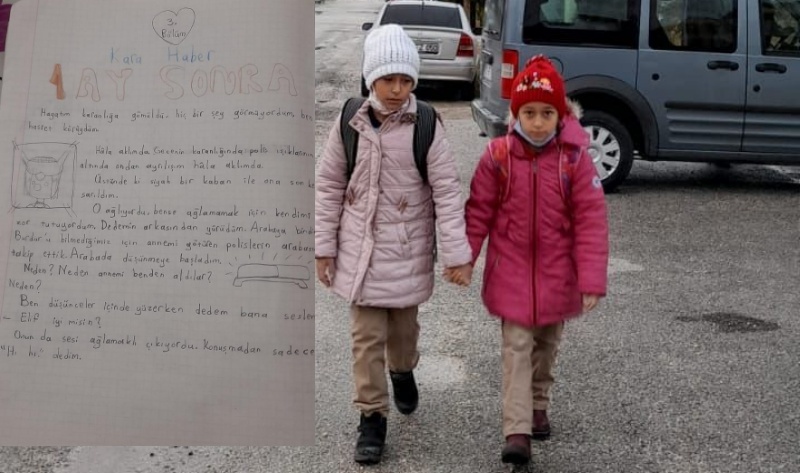 3.
Bölüm
Kara Haber
1 AY SONRA
Hayatım karanlığa gömüldü. hiç bir şey görmüyordum, bir
hasset küçüğdün
Hâlâ aklımda Gecenin karanlığında polis ışıklarının
altında sadan ayrılışım hâla aklımda.
Üstünde bi siyak bir kaban ile ana son
sarıldım.
O ağlıyordu, bense ağlamamak için kendimi
zor tutuyordum. Dedemin arkasından yürüdüm. Arabaya bindim
Burdur'u bilmediğimiz için annemi götüren polislerin arabasın
takip ettik. Arabada düşünmeye başladım.
Neden? Neden annemi benden aldılar?
Neden?
Ben düşünceler içinde yüzerken dedem bana seslen
- Elif iyi misin?
Onun da sesi ağlamaklı çıkıyordu. Konuşmadan sadece
"Hı hı" dedim.